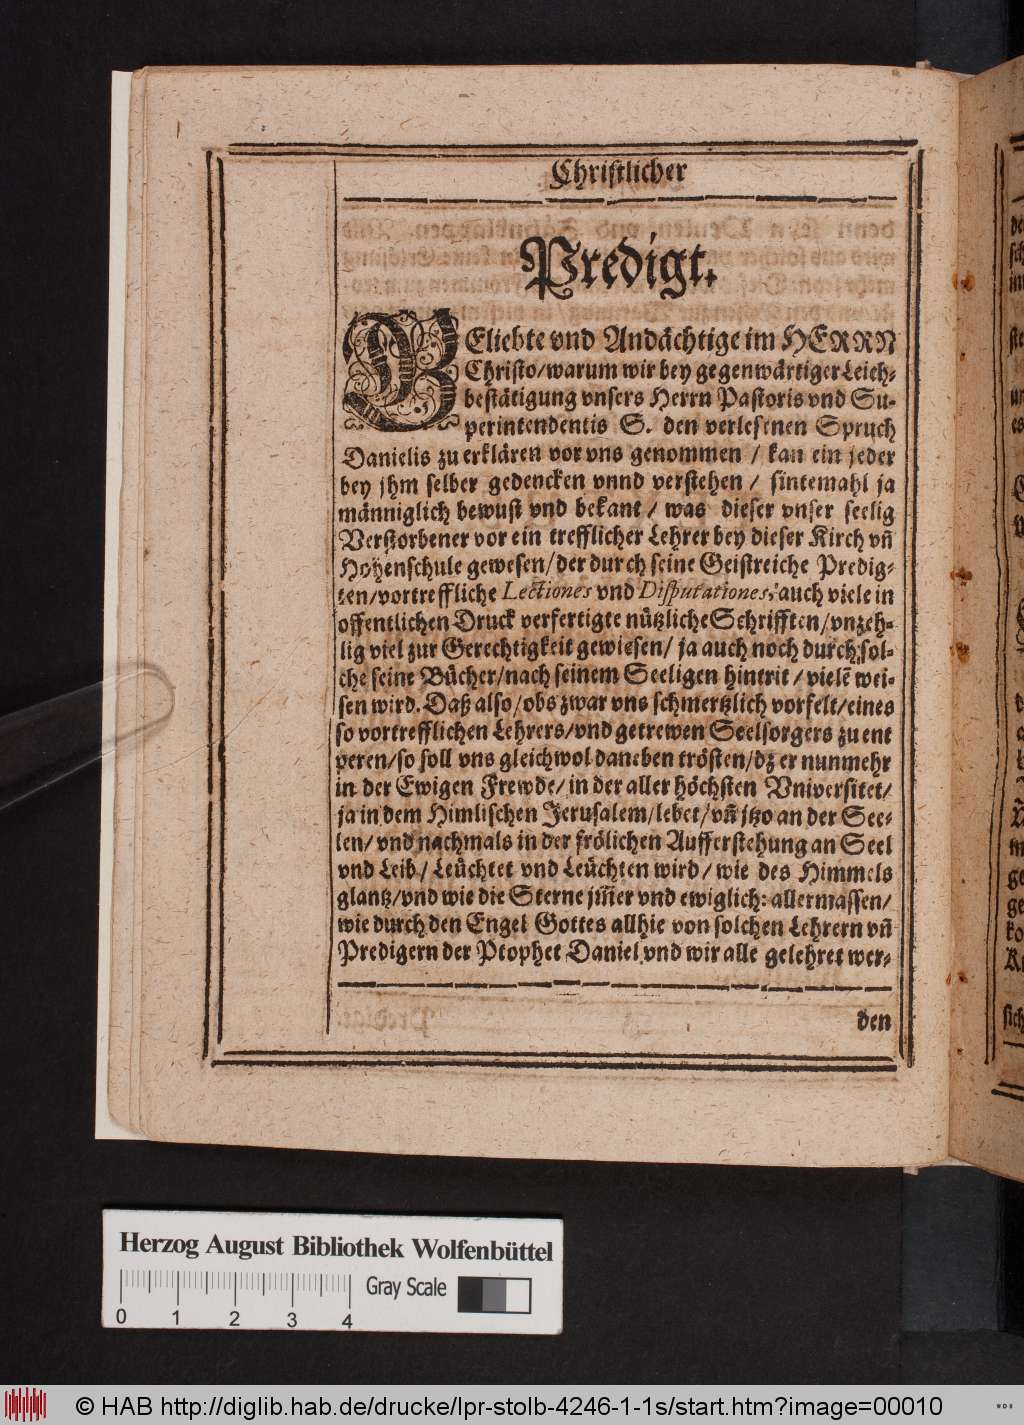 Christlicher
Predigt.
BEliebte vnd Andächtige im HERRN
Christo/warum wir bey gegenwärtiger Leich-
bestätigung vnsers Herrn Pastoris vnd Su-
perintendentis S. den verlesenen Spruch
Danielis zu erklären vor vns genommen / kan ein jeder
bey jhm selber gedencken vnnd verstehen / sintemahl ja
männiglich bewust vnd bekant / was dieser vnser seelig
Verstorbener vor ein trefflicher Lehrer bey dieser Kirch vñ
Hohenschule gewesen/der durch seine Geistreiche Predig-
ten/vortreffliche Lectiones vnd Disputationes, auch viele in
offentlichen Druck verfertigte nützliche Schrifften/vnzeh-
lig viel zur Gerechtigkeit gewiesen/ ja auch noch durch sol-
che seine Bücher/nach seinem Seeligen hintrit / vielẽ wei-
sen wird. Daß also/obs zwar vns schmertzlich vorfelt/eines
so vortrefflichen Lehrers/vnd getrewen Seelsorgers zu ent
peren/so soll vns gleichwol daneben trösten/dz er nunmehr
in der Ewigen Frewde/in der aller höchsten Vniversitet/
ja in dem Himlischen Jerusalem/lebet/vñ jtzo an der See-
len/ vnd nachmals in der frölichen Aufferstehung an Seel
vnd Leib/ Leüchtet vnd Leüchten wird/ wie des Himmels
glantz/vnd wie die Sterne jm̃er vnd ewiglich: allermassen/
wie durch den Engel Gottes allhie von solchen Lehrern vñ
Predigern der Ptophet Daniel vnd wir alle gelehret wer-
den
Herzog August Bibliothek Wolfenbüttel
Gray Scale
0 1 2 3 4
© HAB http://diglib.hab.de/drucke/lpr-stolb-4246-1-1s/start.htm?image=00010